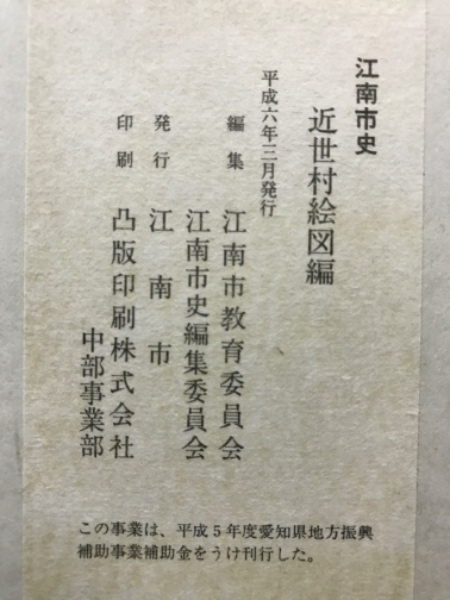 江南市史
近世村絵図編
平成六年三月発行
編集 江南市教育委員会
江南市史編集委員会
発行 江南市
印刷 凸版印刷株式会社
中部事業部
この事業は、平成5年度愛知県地方振興
補助事業補助金をうけ刊行した。